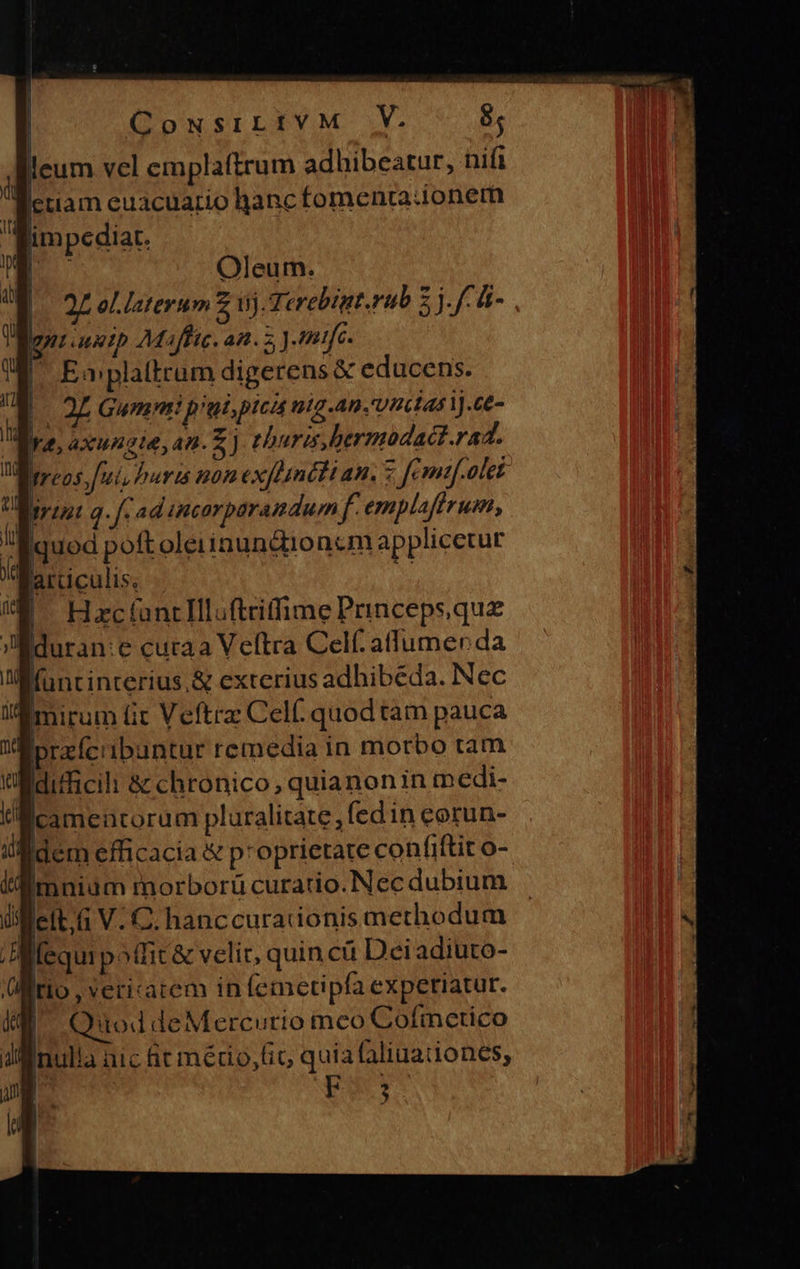 CONSILIVM V. 85
leum vel emplaſtrum adhibeatur, niſi
etiam euacuatio hanc fomentationem
impediat.
Oleum.
♃ ol. laterum ℥ iij. Terebint. rub ʒ j. ſ. li-
gni iunip Maſtic. an. ʒ j. miſc.
Emplaſtrum digerens & educens.
♃ Gummi pini, picis nig. an. vncias ij. ce-
ræ, axungiæ, an. ℥ j. thuris, hermodact. rad.
ireos, ſui, buris non exſtincti an. ℥ ſemiſ. olei
irini q. ſ. ad incorporandum f. emplaſtrum,
quod poſt olei inunctionem applicetur
articulis.
Hæc ſunt Illuſtriſſime Princeps, quæ
durante cura a Veſtra Celſ. aſſumenda
ſunt interius, & exterius adhibẽda. Nec
mirum ſit Veſtræ Celſ. quod tam pauca
præſcribuntur remedia in morbo tam
difficili & chronico, quia non in medi-
camentorum pluralitate, ſed in eorun-
dem efficacia & proprietate conſiſtit o-
mnium morborũ curatio. Nec dubium
eſt, ſi V. C. hanc curationis methodum
ſequi poſſit & velit, quin cũ Dei adiuto-
rio, veritatem in ſemetipſa experiatur.
Quod de Mercurio meo Coſmetico
nulla hic fit mẽtio, ſit, quia ſaliuationes,
F 3